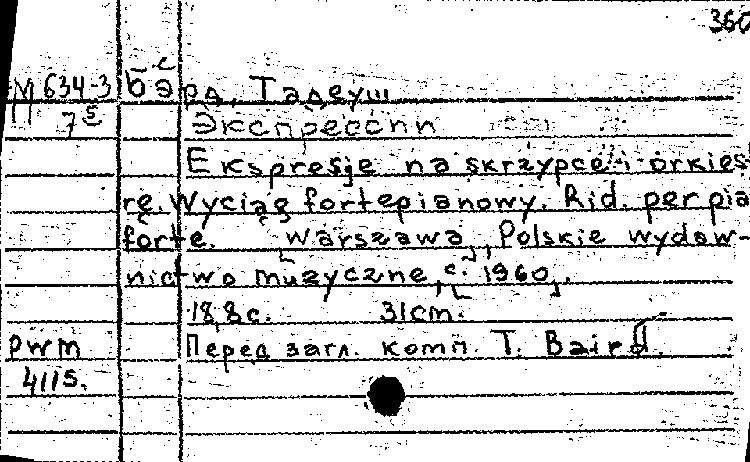 360
М 634-3 Бэрд, Тадеуш
7 5 Экспрессии
Ekspresje na skrzypce i orkies
rę. Wyciąg fortepianowy. Rid. per pia
forte. [Warszawa], Polskie wydaw-
nictwo muzyczne, [c. 1960].
18, 8 с. 31 cm.
PWM Перед загл. комп. T. Baird.
4115.